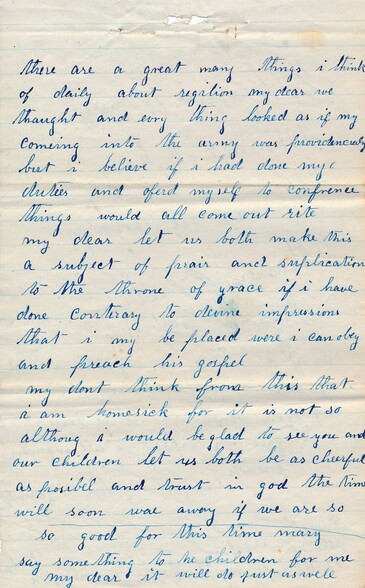 there are a great many things i think
of daily about regilion my dear we
thaught and evry thing looked as if my
comeing into the army was providencialy
but i believe if i had done my
duties and oferd myself to confrence
things would all come out rite
my dear let us both make this
a subject of prair and suplication
to the throne of grace if i have
done contrary to devine impressions
that i my be placed were i can obey
and preach his gospel
my dont think from this that
i am homesick for it is not so
althoug i would be glad to see you and
our children let us both be as cheerful
as posibel and trust in god the time
will soon wae away if we are so
so good for this time mary
say something to the children for me
my dear it will do just as well